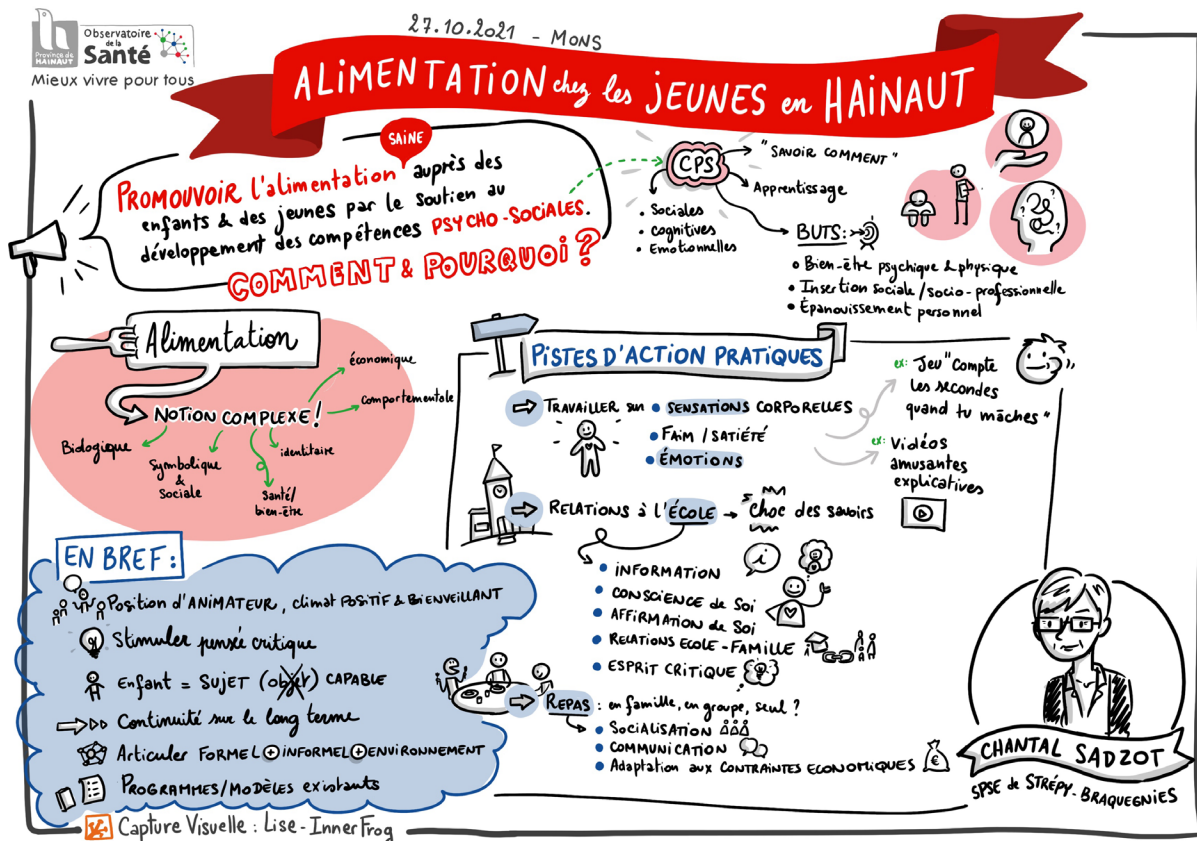 Province de
HAINAUT
Observatoire
de la
Santé
Mieux vivre pour tous
27.10.2021 - MONS
ALIMENTATION chez les JEUNES en HAINAUT
SAINE
PROMOUVOIR l'alimentation auprès des
enfants & des jeunes par le soutien au
développement des compétences PSYCHO-SOCIALES.
COMMENT & POURQUOI ?
CPS
"SAVOIR COMMENT"
Apprentissage
• Sociales
• Cognitives
• Emotionnelles
BUTS:
• Bien-être psychique & physique
• Insertion sociale / socio-professionnelle
• Épanouissement personnel
Alimentation
NOTION COMPLEXE!
économique
comportementale
identitaire
Santé/
bien-être
Symbolique
&
Sociale
Biologique
PISTES D'ACTION PRATIQUES
TRAVAILLER sur • SENSATIONS CORPORELLES
• FAIM / SATIÉTÉ
• ÉMOTIONS
ex: Jeu "Compte
les secondes
quand tu mâches"
ex: Vidéos
amusantes
explicatives
RELATIONS à l'ÉCOLE → choc des savoirs
• INFORMATION
• CONSCIENCE de Soi
• AFFIRMATION de Soi
• RELATIONS ECOLE-FAMILLE
• ESPRIT CRITIQUE
REPAS : en famille, en groupe, seul ?
• SOCIALISATION
• COMMUNICATION
• Adaptation aux CONTRAINTES ECONOMIQUES
€
EN BREF:
Position d'ANIMATEUR, climat POSITIF & BIENVEILLANT
Stimuler pensée critique
Enfant = SUJET (objet) CAPABLE
Continuité sur le long terme
Articuler FORMEL + INFORMEL + ENVIRONNEMENT
PROGRAMMES/MODÈLES existants
CHANTAL SADZOT
SPSE de STRÉPY-BRAQUEGNIES
Capture Visuelle : Lise - InnerFrog